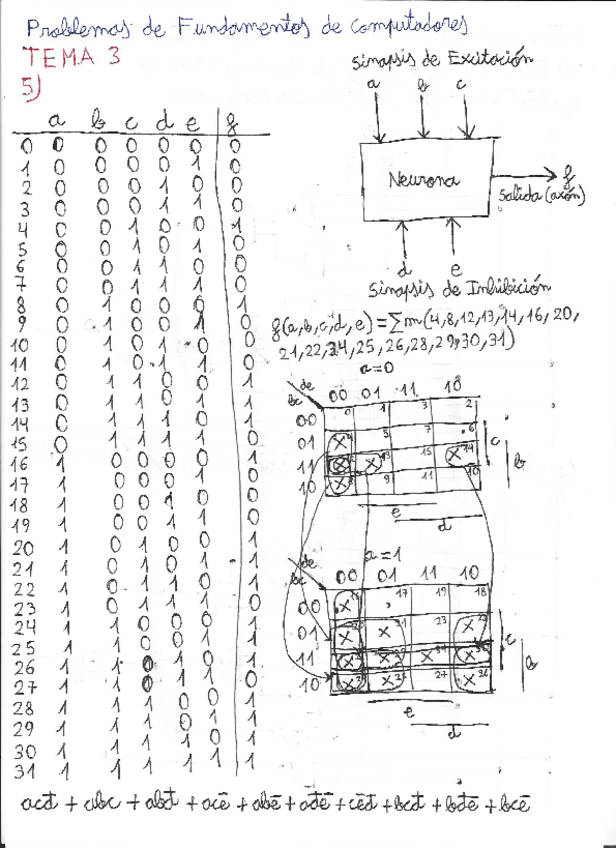 Problemas de Fundamentos de Computadores
TEMA 3
5)
a b c d e f
0 0 0 0 0 0 0
1 0 0 0 0 1 0
2 0 0 0 1 0 0
3 0 0 0 1 1 0
4 0 0 1 0 0 1
5 0 0 1 0 1 0
6 0 0 1 1 0 0
7 0 0 1 1 1 0
8 0 1 0 0 0 1
9 0 1 0 0 1 0
10 0 1 0 1 0 0
11 0 1 0 1 1 0
12 0 1 1 0 0 1
13 0 1 1 0 1 1
14 0 1 1 1 0 1
15 0 1 1 1 1 0
16 1 0 0 0 0 1
17 1 0 0 0 1 0
18 1 0 0 1 0 0
19 1 0 0 1 1 0
20 1 0 1 0 0 1
21 1 0 1 0 1 1
22 1 0 1 1 0 1
23 1 0 1 1 1 0
24 1 1 0 0 0 1
25 1 1 0 0 1 1
26 1 1 0 1 0 1
27 1 1 0 1 1 0
28 1 1 1 0 0 1
29 1 1 1 0 1 1
30 1 1 1 1 0 1
31 1 1 1 1 1 1
Sinapsis de Excitación
a b c
Neurona
f
Salida (axón)
d e
Sinapsis de Inhibición
f(a,b,c,d,e)=∑m(4,8,12,13,14,16,20,
21,22,24,25,26,28,29,30,31)
a=0
de
bc
00 01 11 10
00 0 1 3 2
01 X 5 7 6
11 X X 13 15 X 14
10 X 9 11 10
c
b
e
d
a=1
de
bc
00 01 11 10
00 X 17 19 18
01 X X 23 X
11 X X X X
10 X X 27 X 26
c
b
e
d
acd̄ + abc + abd̄ + acē + abē + ad̄ē + cēd̄ + bcd̄ + bd̄ē + bcē